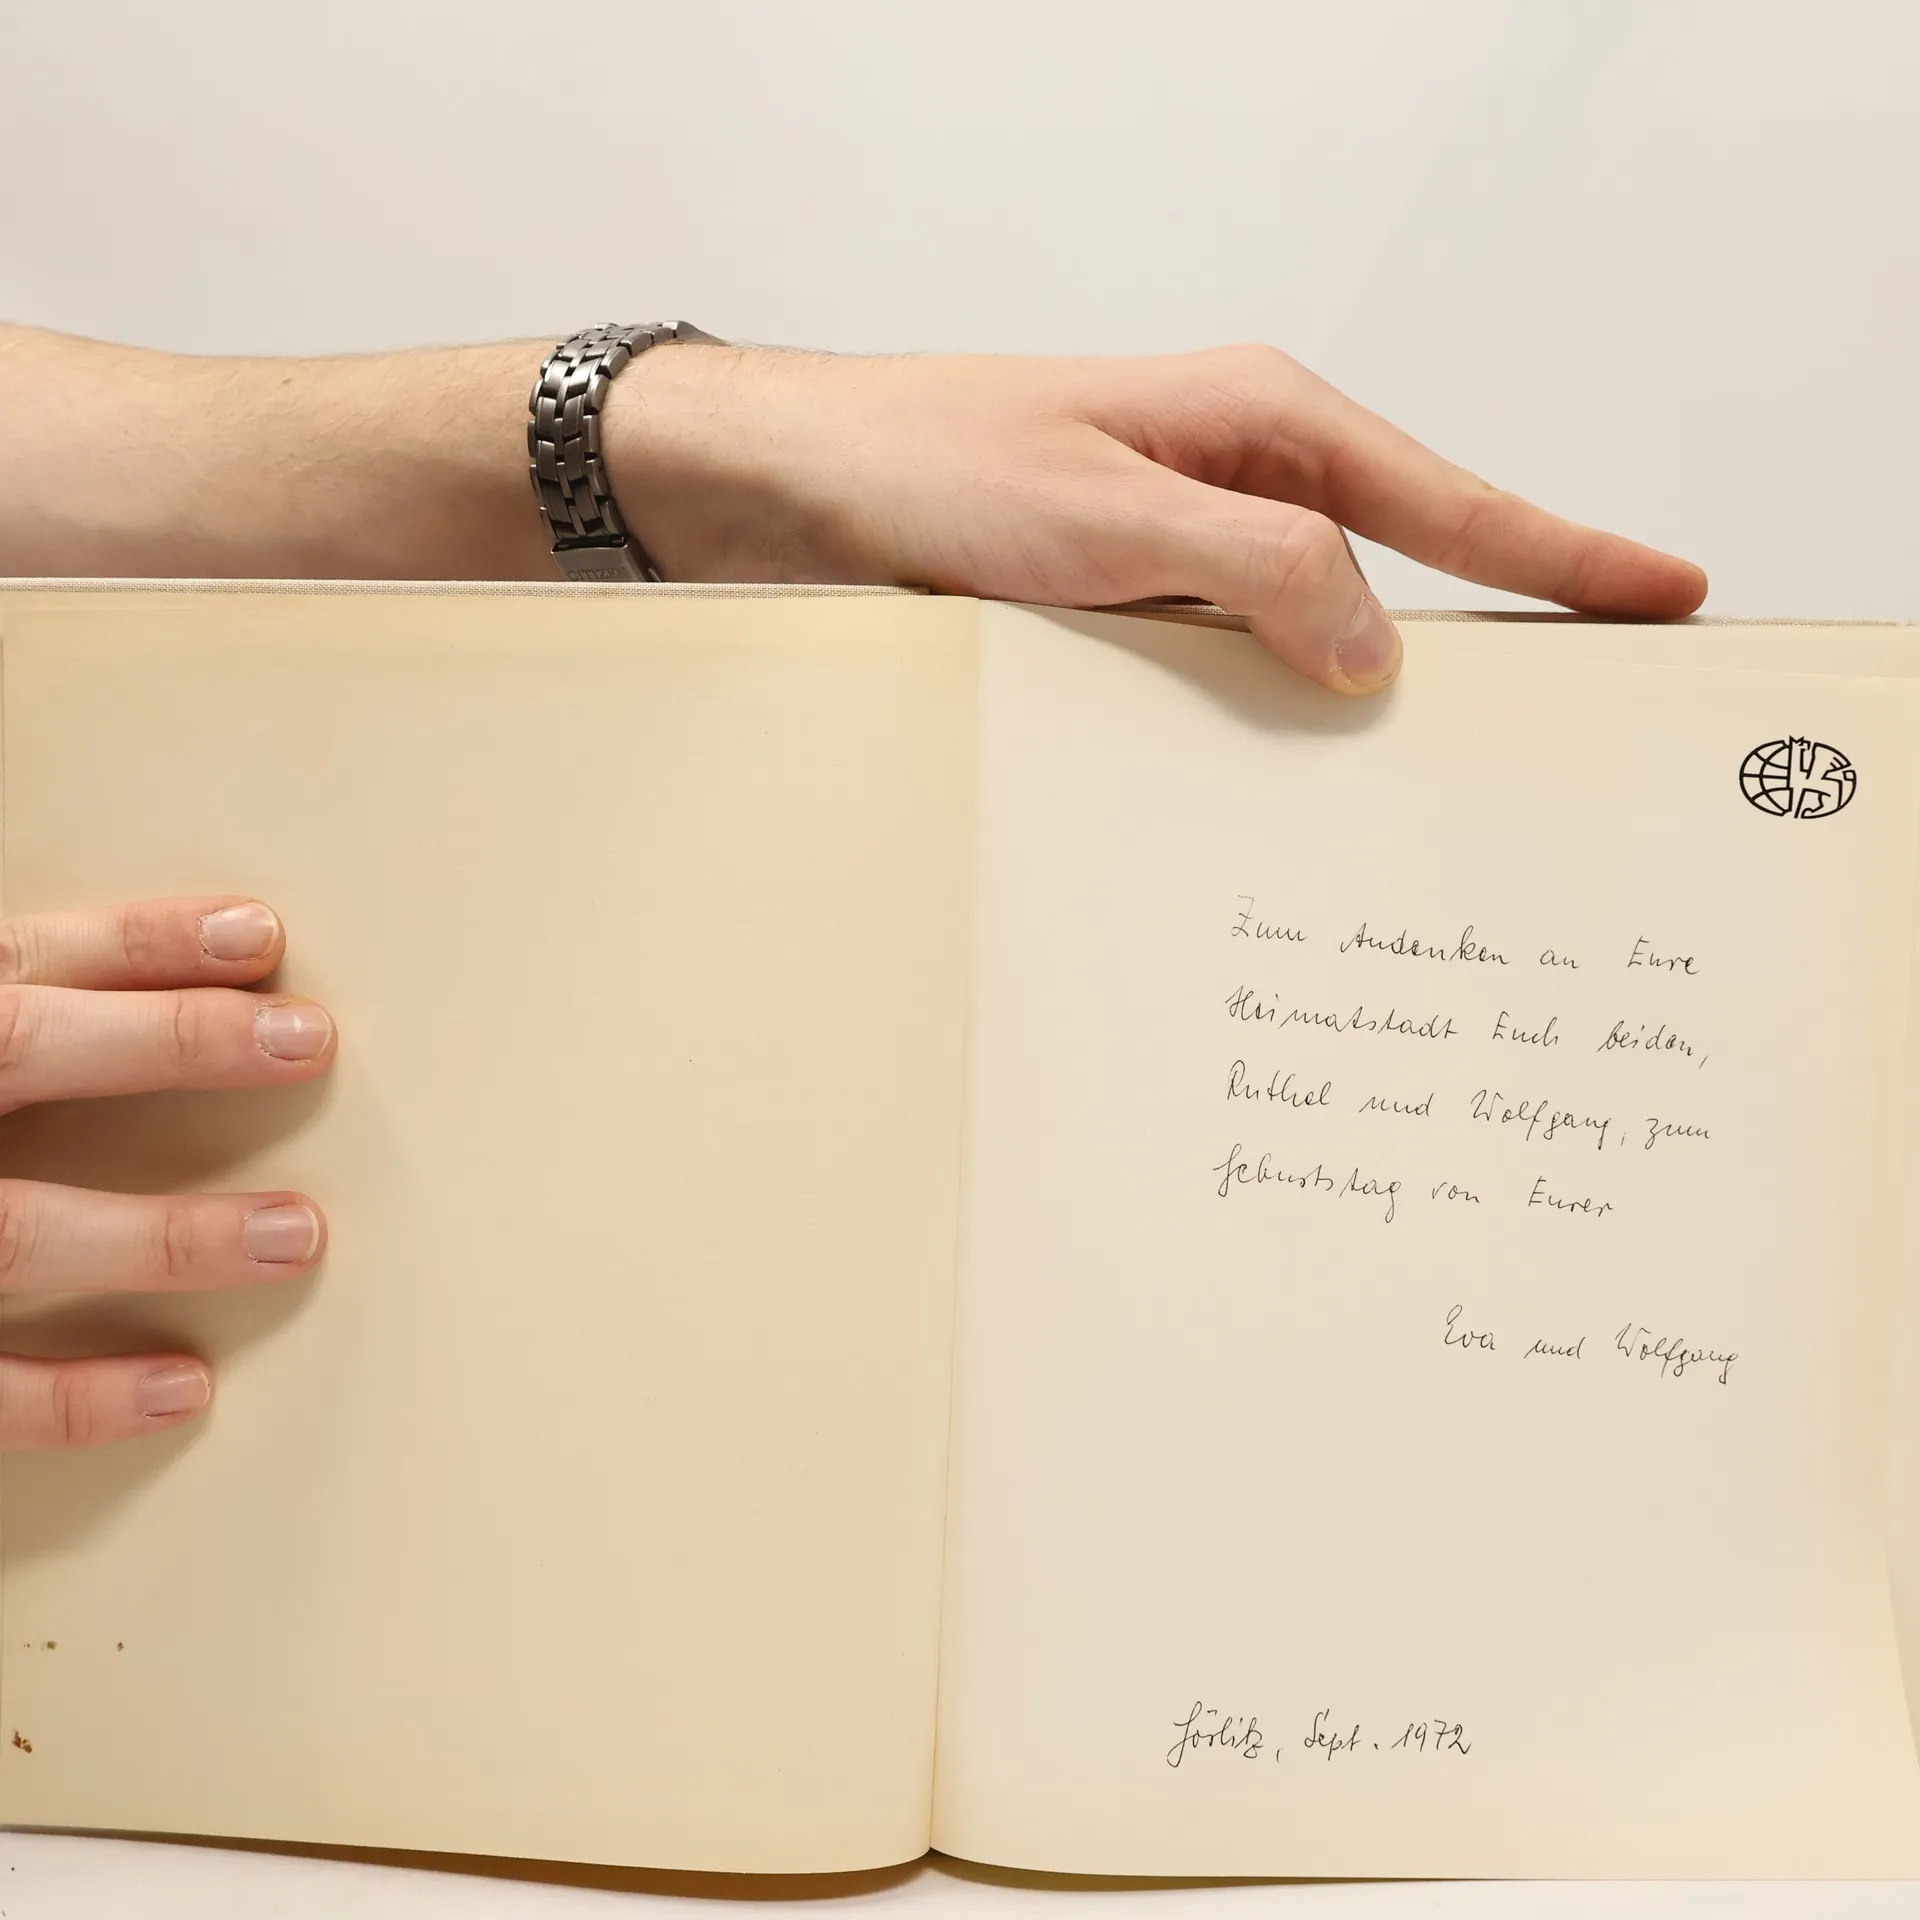 CITIZEN
Zum Andenken an Eure
Heimatstadt Euch beiden,
Ruthel und Wolfgang, zum
Geburtstag von Eurer
Eva und Wolfgang
Görlitz, Sept. 1972